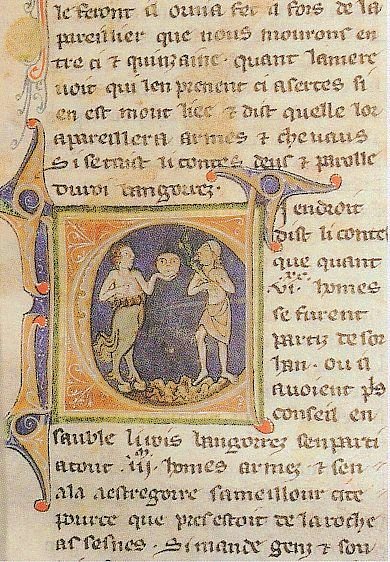 le feront il orura fet il fois de la
pareillier que nous mourons en
tre ci & quinzaine. quant lamere
uoit qui len prenent ci acertes si
en est mout liee & dist quelle lor
apareillera armes & cheuaus
Si se taist li contes deus & parolle
du roi uangorrez.
endroit
dist li conte
que quant
.vi. homes
se furent
partiz de sor
han. ou il
auoient pls
conseil en
sauble li rois uangorrez sen parti
atout .iii. homes armez & sen
ala a estregorre sa meillour cite
pource que pres estoit de la roche
as sesnes. Si mande genz & sou